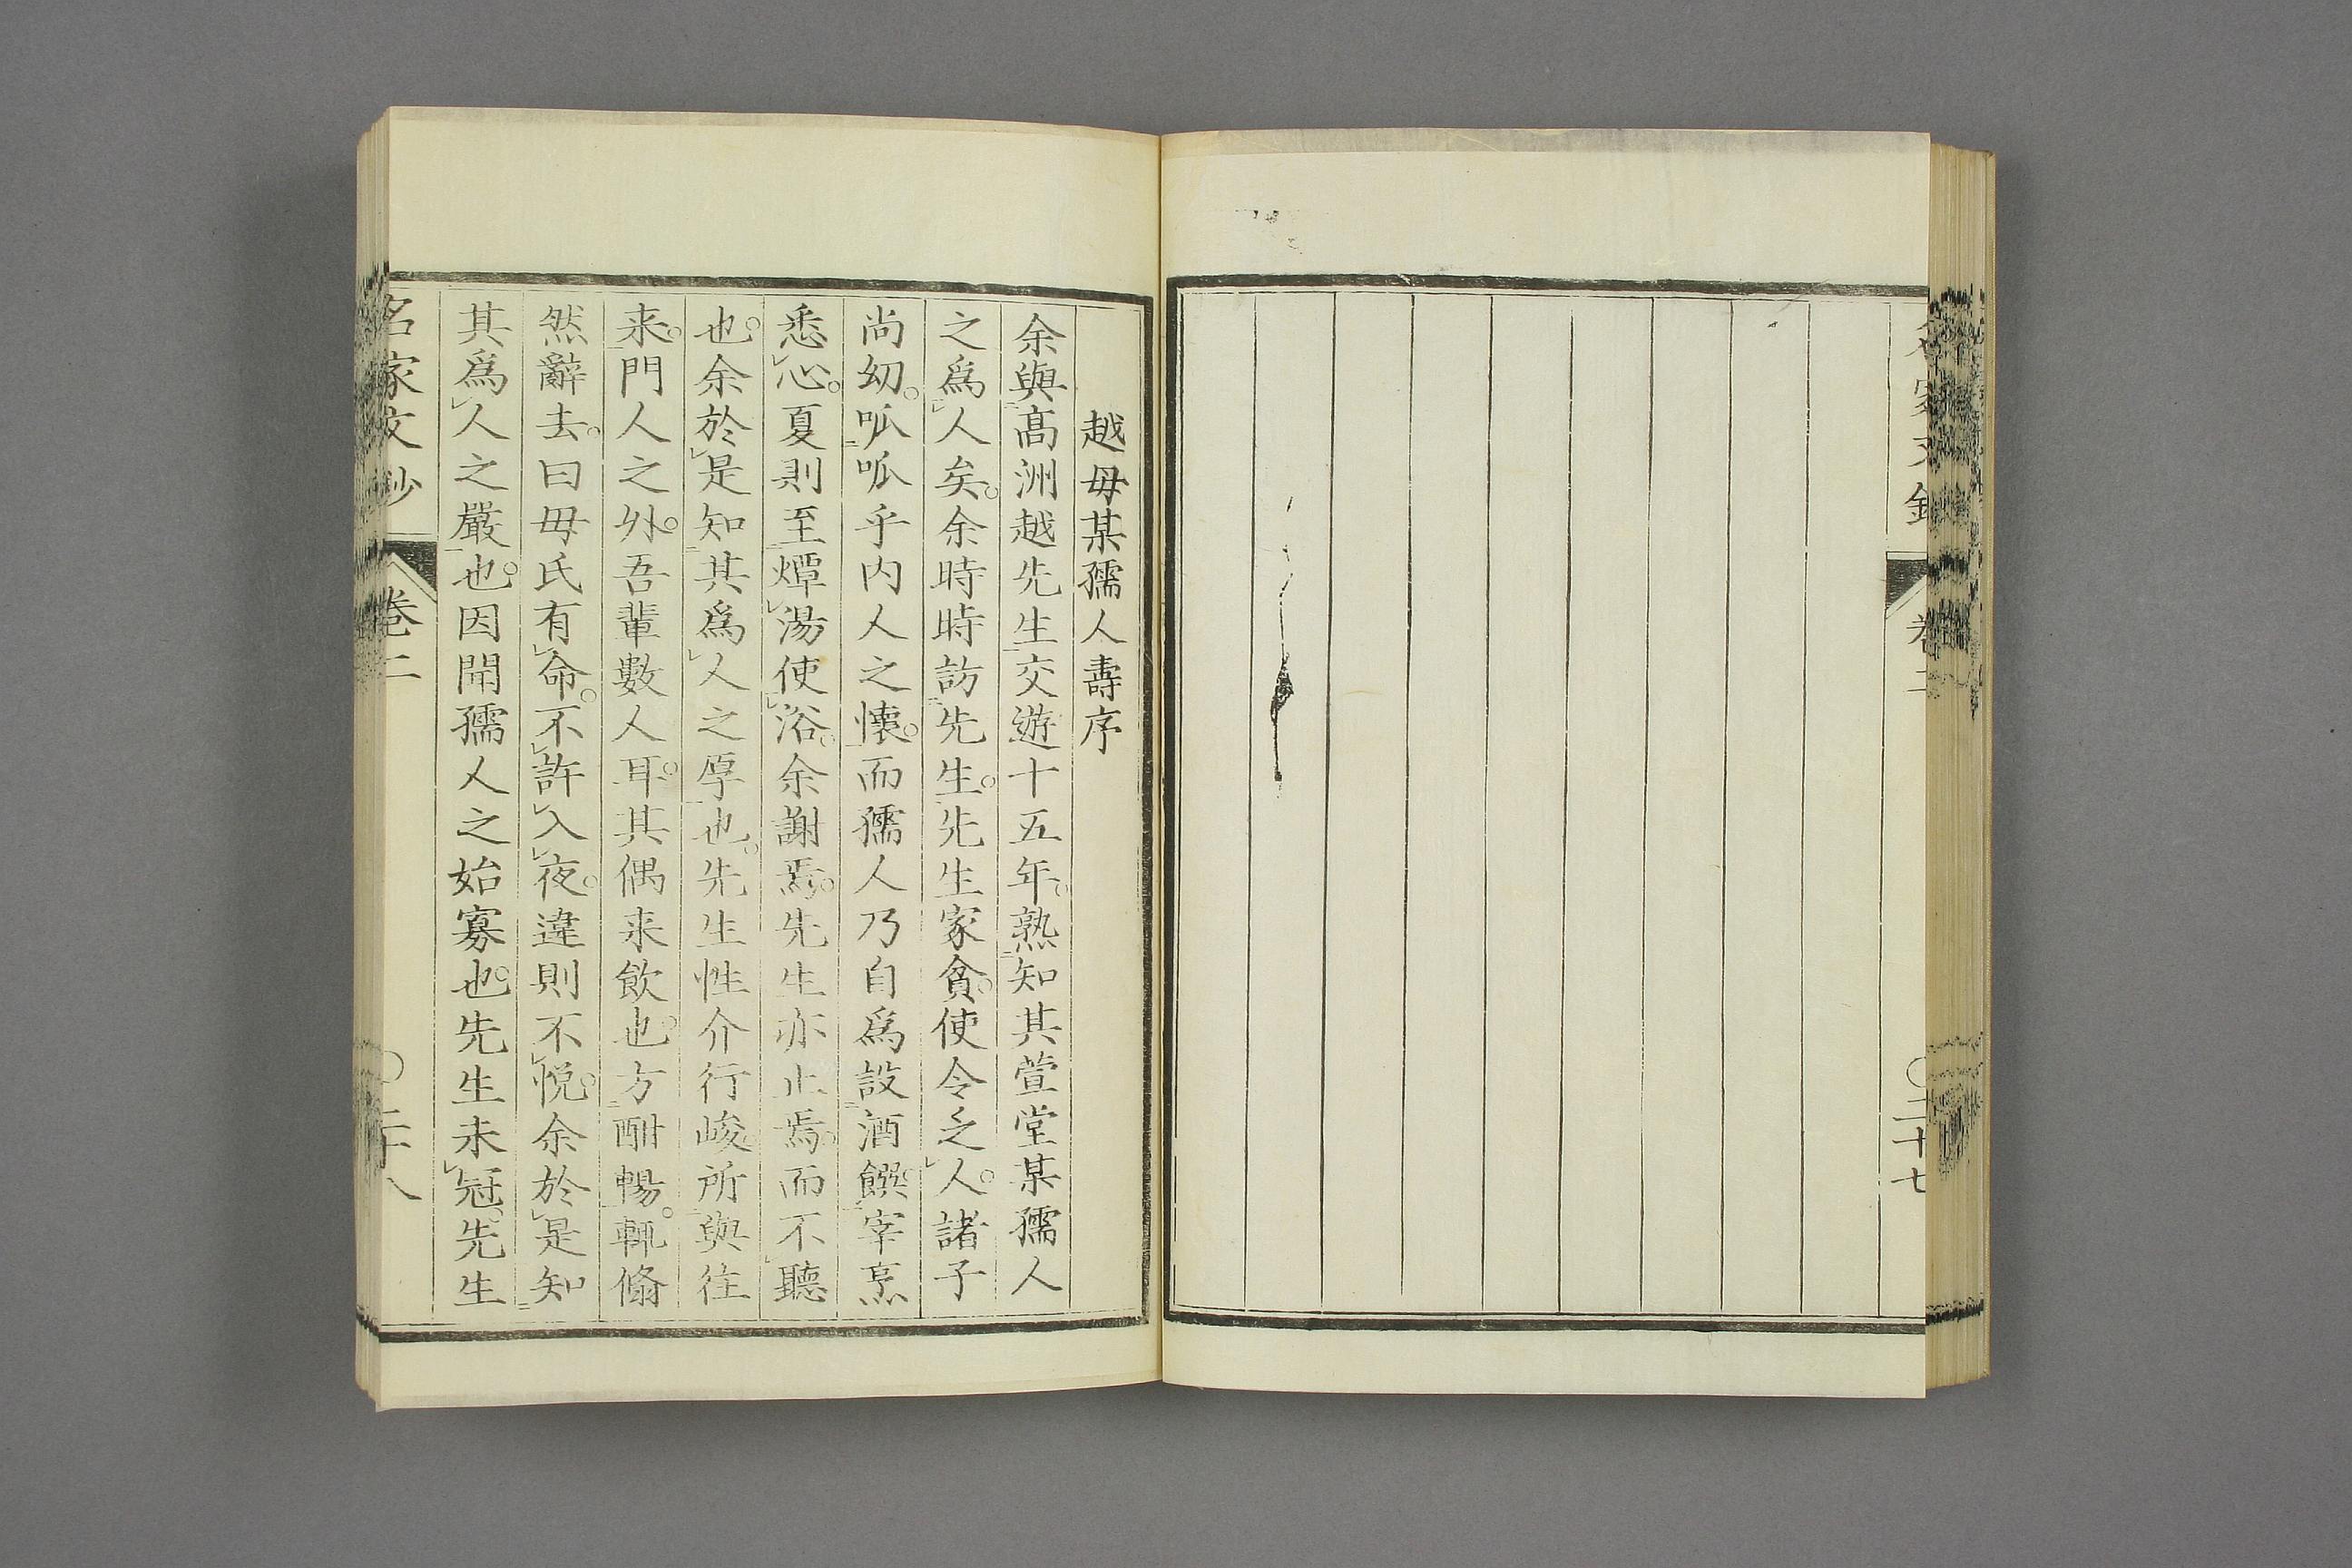 卷二
〇二十七
越毋某孺人壽序
余與髙洲越先生交遊十五年。熟知其萱堂某孺人
之爲人矣。余時時訪先生。先生家貧。使令乏人。諸子
尚幼。呱呱乎内人之懷。而孺人乃自爲設酒饌。宰烹
悉心。夏則至燂湯使浴。余謝焉。先生亦止焉。而不聽
也。余於是知其爲人之厚也。先生性介行峻。所與往
来。門人之外。吾輩數人耳。其偶来飲也。方酣暢。輒翛
然辭去。曰毋氏有命。不許入夜。違則不悦。余於是知
其爲人之嚴也。因聞孺人之始寡也。先生未冠。先生
名家文鈔
卷二
〇二十八